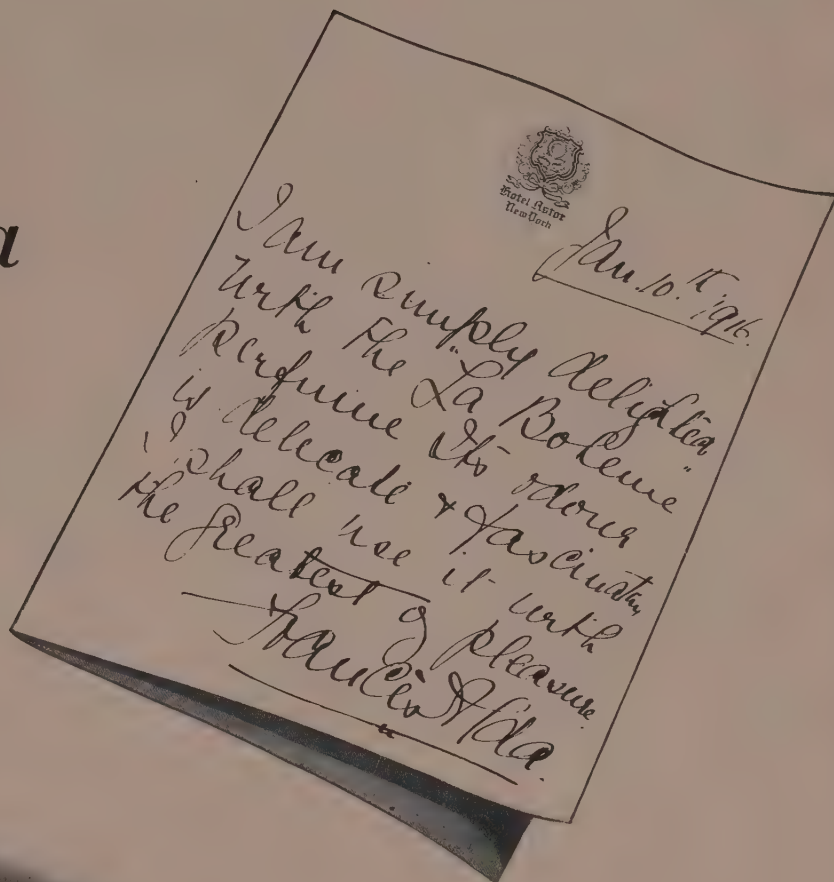 a
Hotel Astor
New York
Jan. 10.th 1916.
I am simply delighted
with the "La Boheme"
perfume Its odour
is delicate & fascinating
I shall use it with
the greatest of pleasure.
Frances Alda.